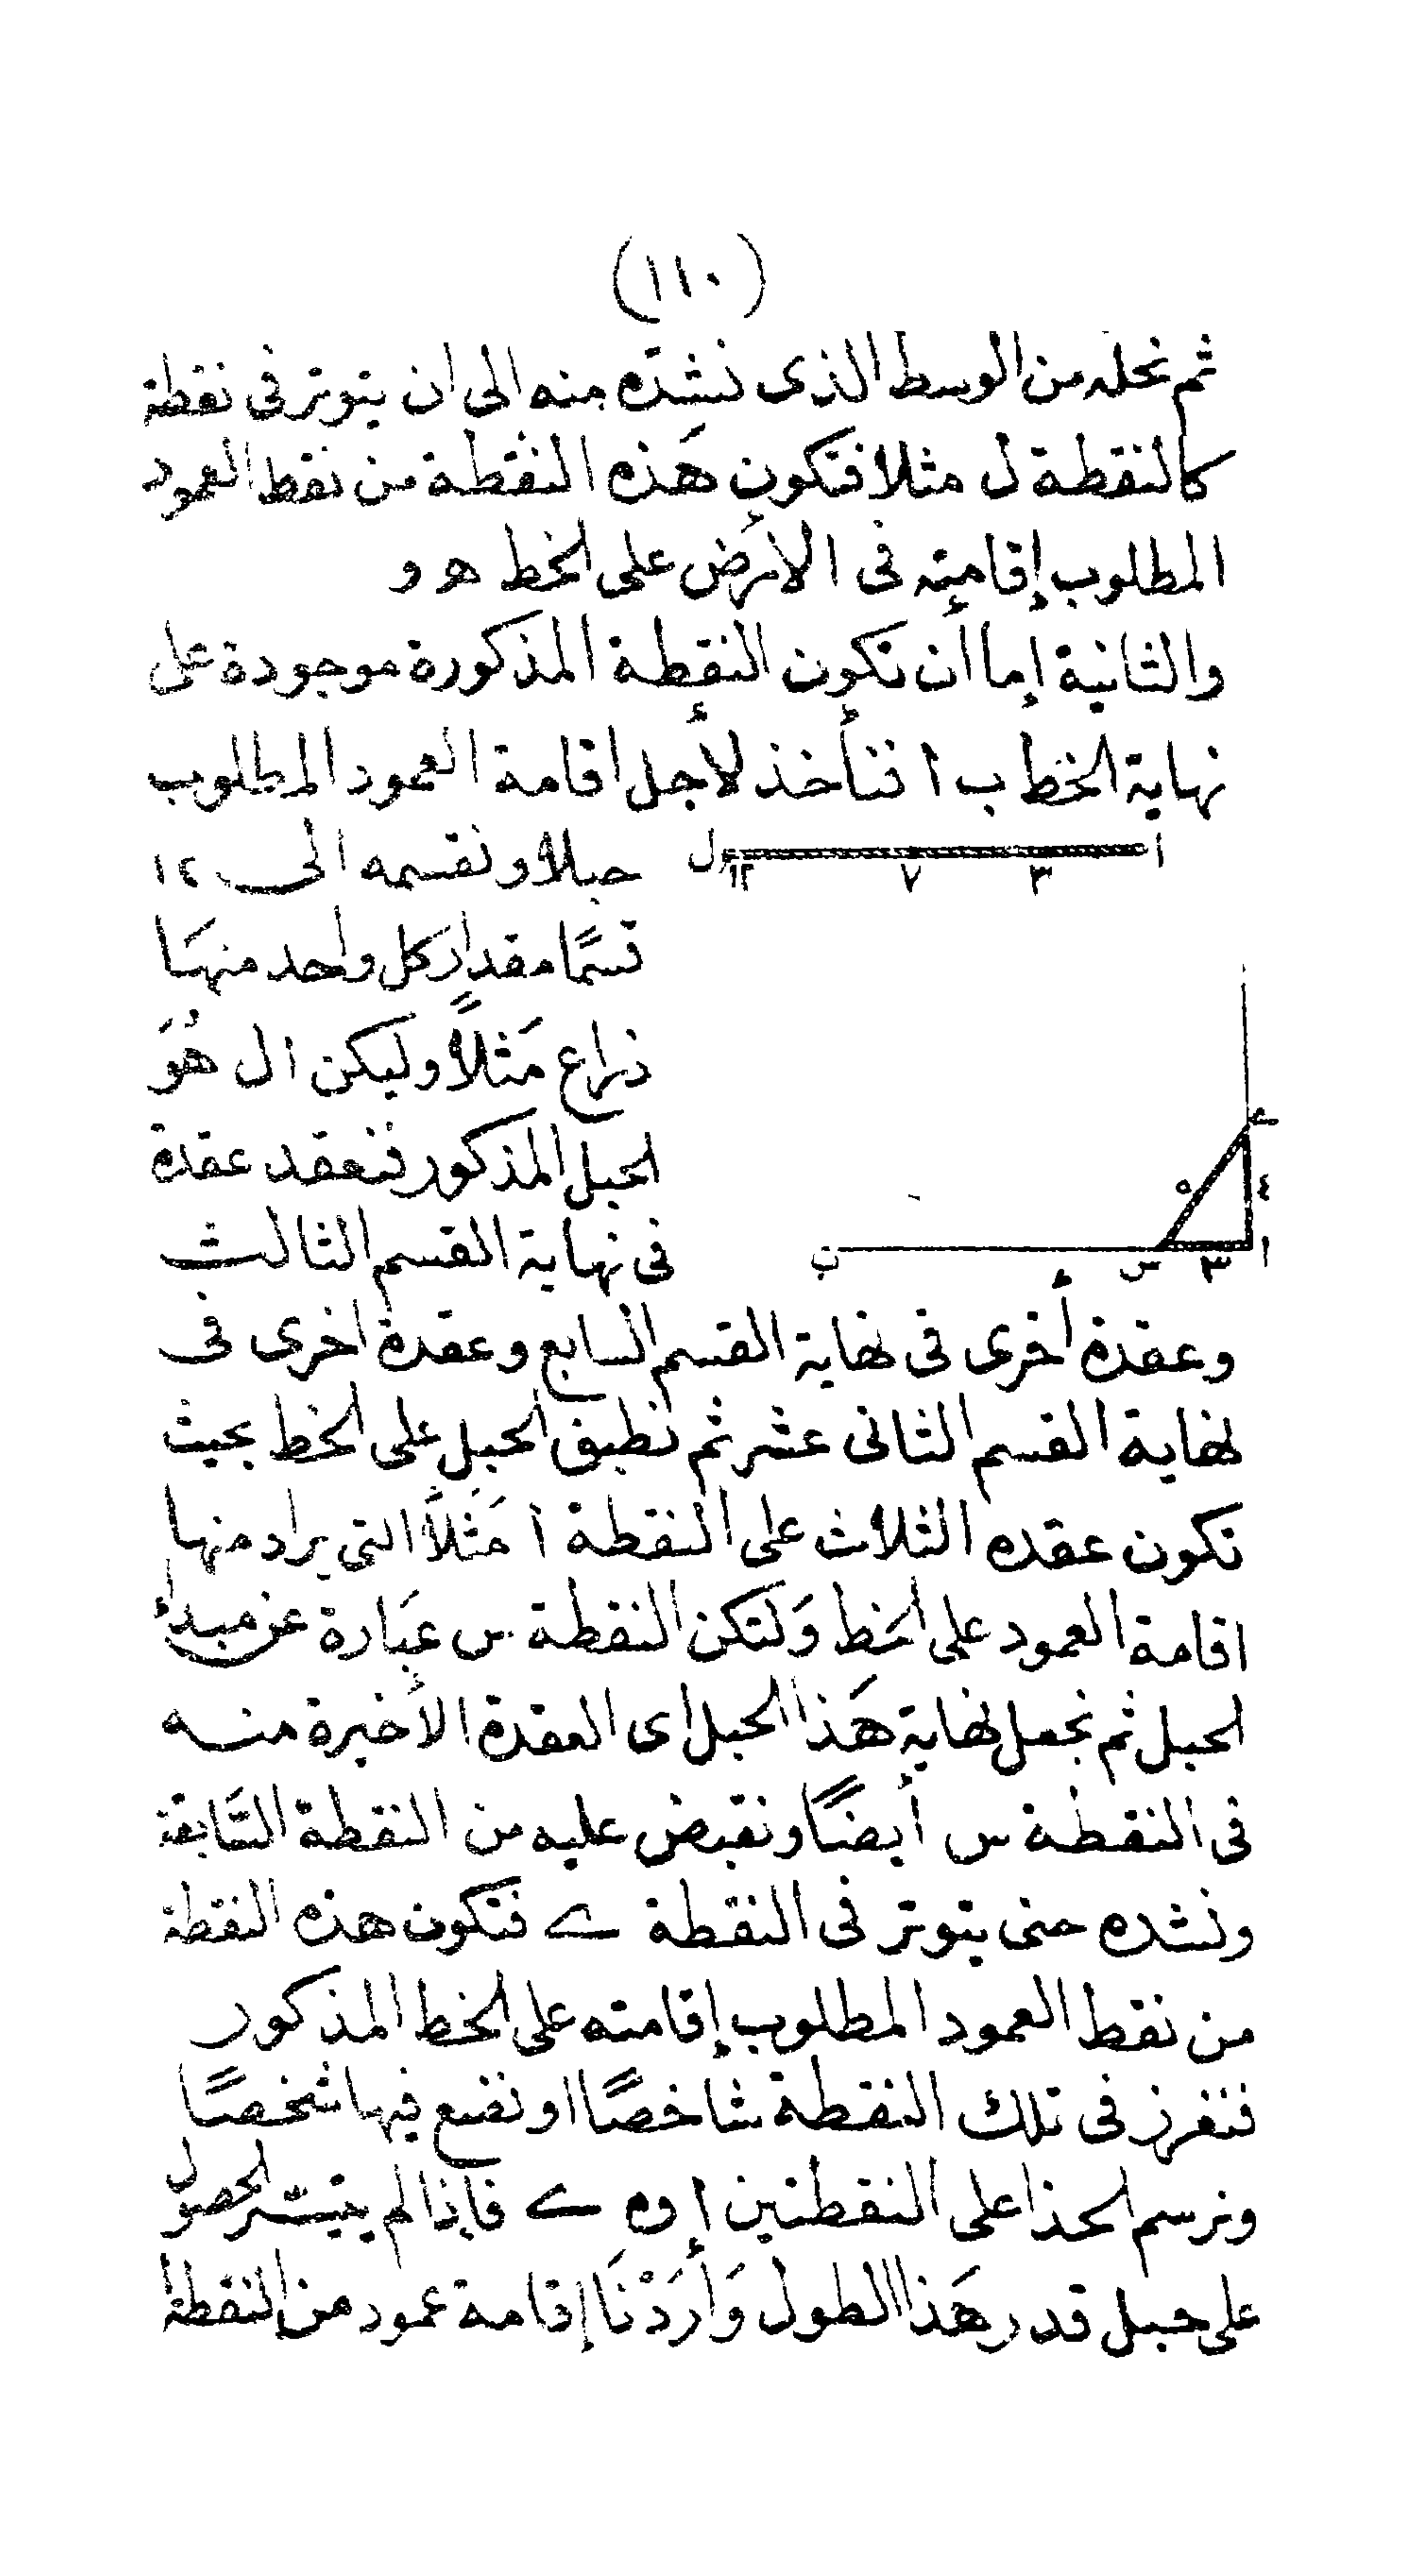 (١١٠)
ثم نحله من الوسط الذى نشدّه منه الى ان يتوتر فى نقطة
كالنقطة ل مثلا فتكون هَذه النقطة من نقط العمود
المطلوب إقامته فى الأرض على الخط ه و
والثانية إما أن تكون النقطة المذكورة موجودة على
نهاية الخط ب ا فنأخذ لأجل اقامة العمود المطلوب
ا ٣ ٧ ١٢ ل
حبلا ونقسمه الى ١٢
قسمًا مقدار كل واحد منهَا
ذراع مَثلاً وليكن ا ل هُوَ
الحبل المذكور فنعقد عقدة
فى نهاية القسم الثالث
ے
٥ ٤
ا ٣ س ب
وعقدة أخرى فى نهاية القسم السابع وعقدة اخرى فى
نهاية القسم الثانى عشر ثم نطبق الحبل على الخط بحيث
تكون عقده الثلاث على النقطة ا مَثلاً التى يراد منها
اقامة العمود على الخط وَلتكن النقطة س عبَارة عن مبدإ
الحبل ثم نجعل نهاية هَذا الحبل اى العقدة الأخيرة منه
فى النقطة س أيضًا ونقبض عليه من النقطة السَّابعة
ونشده حتى يتوتر فى النقطة ے فتكون هذه النقطة
من نقط العمود المطلوب إقامته على الخط المذكور
فنغرز فى تلك النقطة شاخصًا او نضع فيها شخصًا
ونرسم الحذا على النقطتين ا و ے فإذا لم يتيسّر الحصول
على حبل قدر هَذا الطول وَأرَدْنَا إقامة عمود من النقطة ا